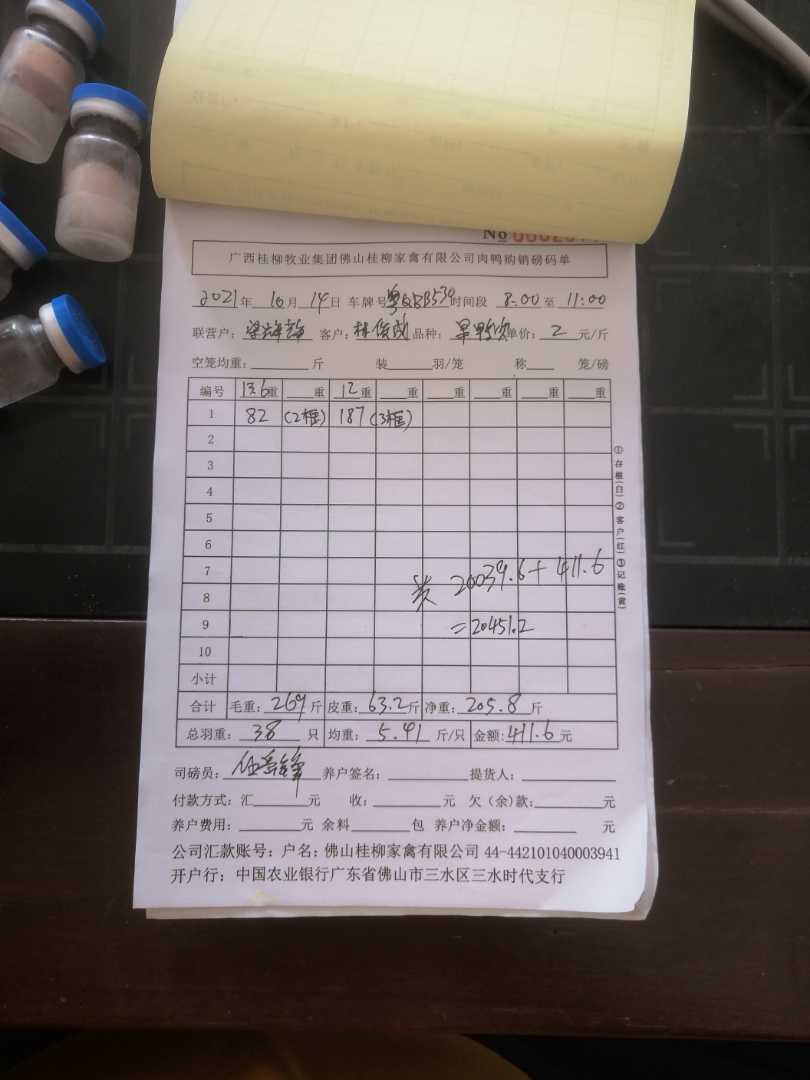 No
广西桂柳牧业集团佛山桂柳家禽有限公司肉鸭购销磅码单
2021年 10月 14日 车牌号 时间段 8:00 至 11:00
联营户: 客户:林俊 品种: 单价: 2 元/斤
空笼均重: 斤 装 羽/笼 称 笼/磅
编号 13.6重 重 12重 重 重 重 重 重
1 82 (2框) 187 (3框)
2
3
4
5
6
7 20039.6+411.6
8
9 =20451.2
10
小计
合计 毛重: 269 斤 皮重: 63.2斤 净重: 205.8 斤
总羽重: 38 只 均重: 5.41 斤/只 金额: 411.6 元
司磅员: 养户签名: 提货人:
付款方式: 汇 元 收: 元 欠(余)款: 元
养户费用: 元 余料 包 养户净金额: 元
公司汇款账号: 户名: 佛山桂柳家禽有限公司 44-442101040003941
开户行: 中国农业银行广东省佛山市三水区三水时代支行
①存根(白)②客户(红)③记账(黄)